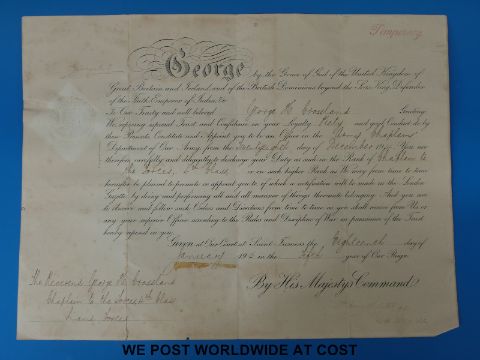 Temporary
George by the Grace of God of the United Kingdom of
Great Britain and Ireland, and of the British Dominions beyond the Seas King, Defender
of the Faith, Emperor of India, &c
To Our Trusty and well beloved George H Crossland Greeting
We reposing especial Trust and Confidence in your Loyalty, Piety and good Conduct do by
these Presents Constitute and Appoint you to be an Officer in the Chaplains
Department of Our Army from the Twenty eighth day of December You are
therefore carefully and diligently to discharge your Duty as such in the Rank of Chaplain to
the Forces, 4th Class or in such higher Rank as We may from time to time
hereafter be pleased to promote or appoint you to, of which a notification will be made in the London
Gazette, by doing and performing all and all manner of things thereunto belonging. And you are
to observe and follow such Orders and Directions from time to time as you shall receive from Us or
any your superior Officer according to the Rules and Discipline of War in pursuance of the Trust
hereby reposed in you.
Given at Our Court at Saint James's the Eighteenth day of
January 191 in the year of Our Reign.
By His Majesty's Command.
The Reverend George H Crossland
Chaplain to the Forces 4th Class
Land Forces
WE POST WORLDWIDE AT COST